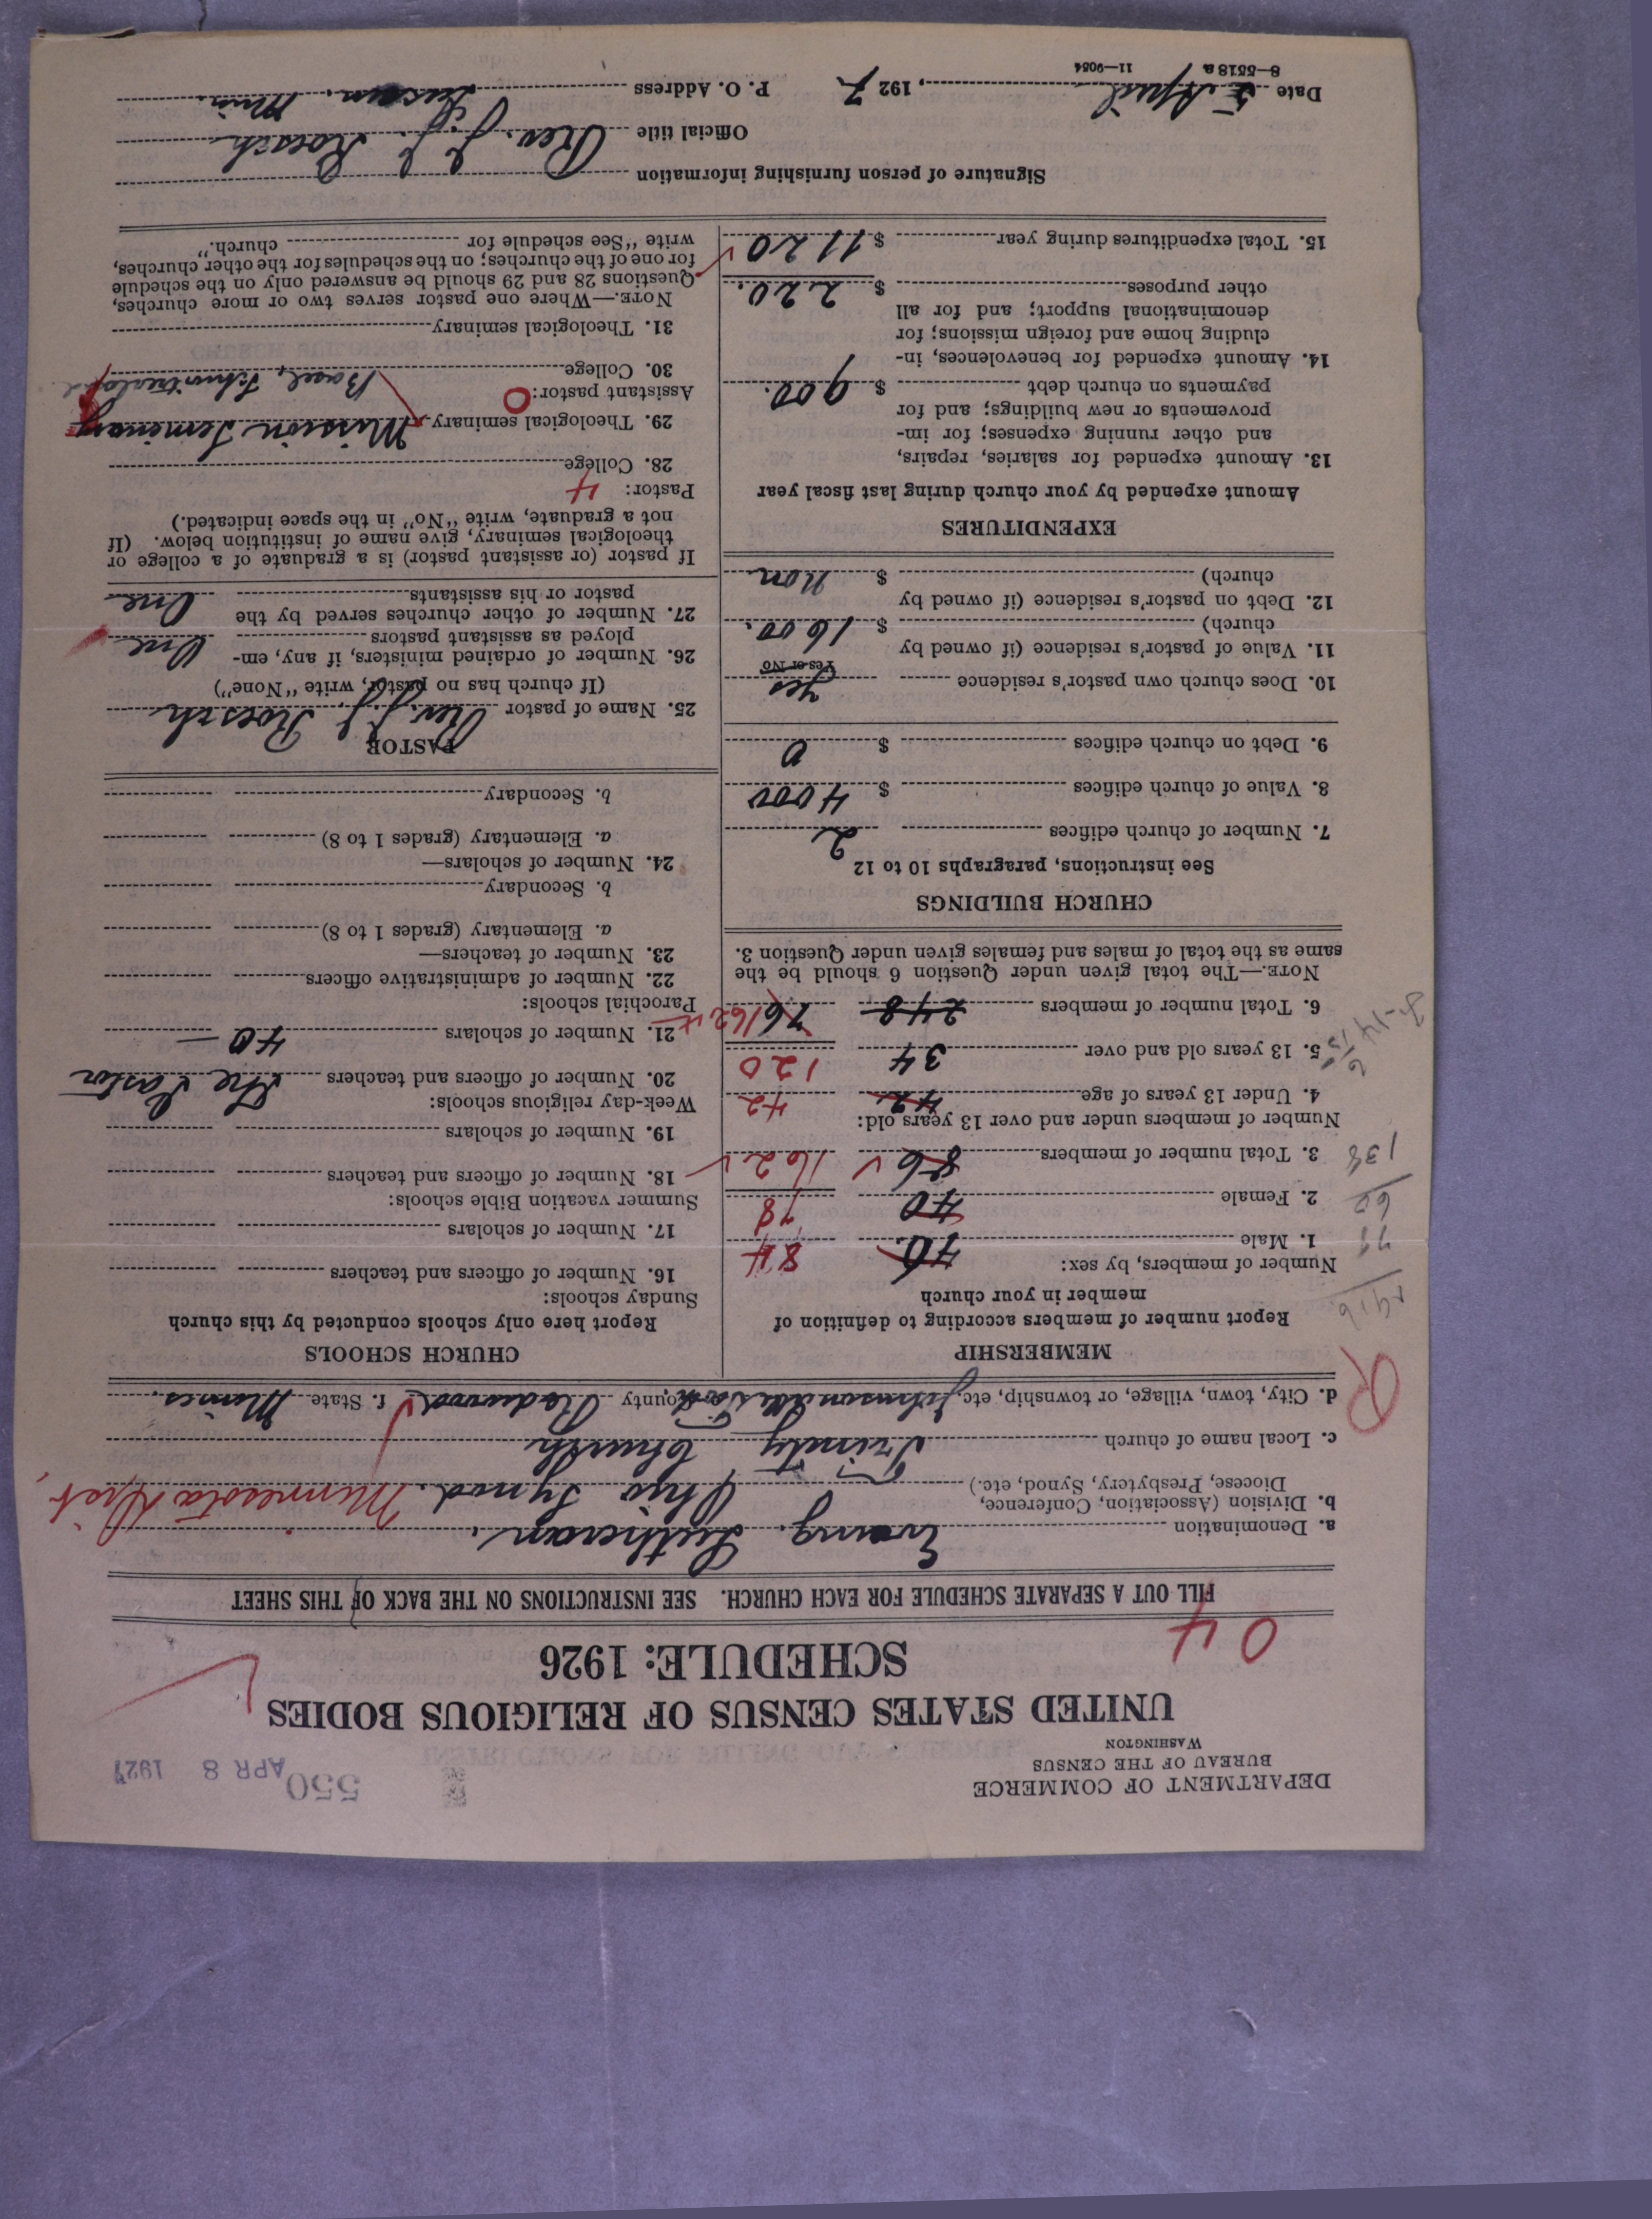 DEPARTMENT OF COMMERCE
BUREAU OF THE CENSUS
WASHINGTON
550
APR 8 1927
UNITED STATES CENSUS OF RELIGIOUS BODIES
SCHEDULE: 1926
04
FILL OUT A SEPARATE SCHEDULE FOR EACH CHURCH. SEE INSTRUCTIONS ON THE BACK OF THIS SHEET
a. Denomination Evang. Lutheran.
b. Division (Association, Conference, Diocese, Presbytery, Synod, etc.) Ohio Synod. Minnesota Dist.
c. Local name of church Trinity Church
R
d. City, town, village, or township, etc. Johnsondale e. County f. State Minnes.
MEMBERSHIP
Report number of members according to definition of
member in your church
Number of members, by sex:
1. Male 40. 84
2. Female 40 78
3. Total number of members 86 162
Number of members under and over 13 years old:
4. Under 13 years of age 42 42
5. 13 years old and over 34 120
6. Total number of members 248 76 162
NOTE.—The total given under Question 6 should be the
same as the total of males and females given under Question 3.
78
60
138
CHURCH BUILDINGS
See instructions, paragraphs 10 to 12
7. Number of church edifices 2
8. Value of church edifices $ 4000
9. Debt on church edifices $ 0
10. Does church own pastor's residence yes
Yes or No
11. Value of pastor's residence (if owned by
church) $ 1600.
12. Debt on pastor's residence (if owned by
church) $ non
EXPENDITURES
Amount expended by your church during last fiscal year
13. Amount expended for salaries, repairs,
and other running expenses; for im-
provements or new buildings; and for
payments on church debt $ 900.
14. Amount expended for benevolences, in-
cluding home and foreign missions; for
denominational support; and for all
other purposes $ 220.
15. Total expenditures during year $ 1120
CHURCH SCHOOLS
Report here only schools conducted by this church
Sunday schools:
16. Number of officers and teachers
17. Number of scholars
Summer vacation Bible schools:
18. Number of officers and teachers
19. Number of scholars
Week-day religious schools:
20. Number of officers and teachers The Pastor
21. Number of scholars 40 —
Parochial schools:
22. Number of administrative officers
23. Number of teachers—
a. Elementary (grades 1 to 8)
b. Secondary
24. Number of scholars—
a. Elementary (grades 1 to 8)
b. Secondary
PASTOR
25. Name of pastor Rev. J. J. Roesch
(If church has no pastor, write "None")
26. Number of ordained ministers, if any, em-
ployed as assistant pastors One
27. Number of other churches served by the
pastor or his assistants One
If pastor (or assistant pastor) is a graduate of a college or
theological seminary, give name of institution below. (If
not a graduate, write "No" in the space indicated.)
Pastor: 4
28. College
29. Theological seminary Mission Seminary
Assistant pastor: 0 Basel, Schwitzerland
30. College
31. Theological seminary
NOTE.—Where one pastor serves two or more churches,
Questions 28 and 29 should be answered only on the schedule
for one of the churches; on the schedules for the other churches,
write "See schedule for church."
Signature of person furnishing information
Official title Rev. J. J. Roesch
Date 5 April, 1927 P. O. Address Minn.
8—5518 a 11—9054